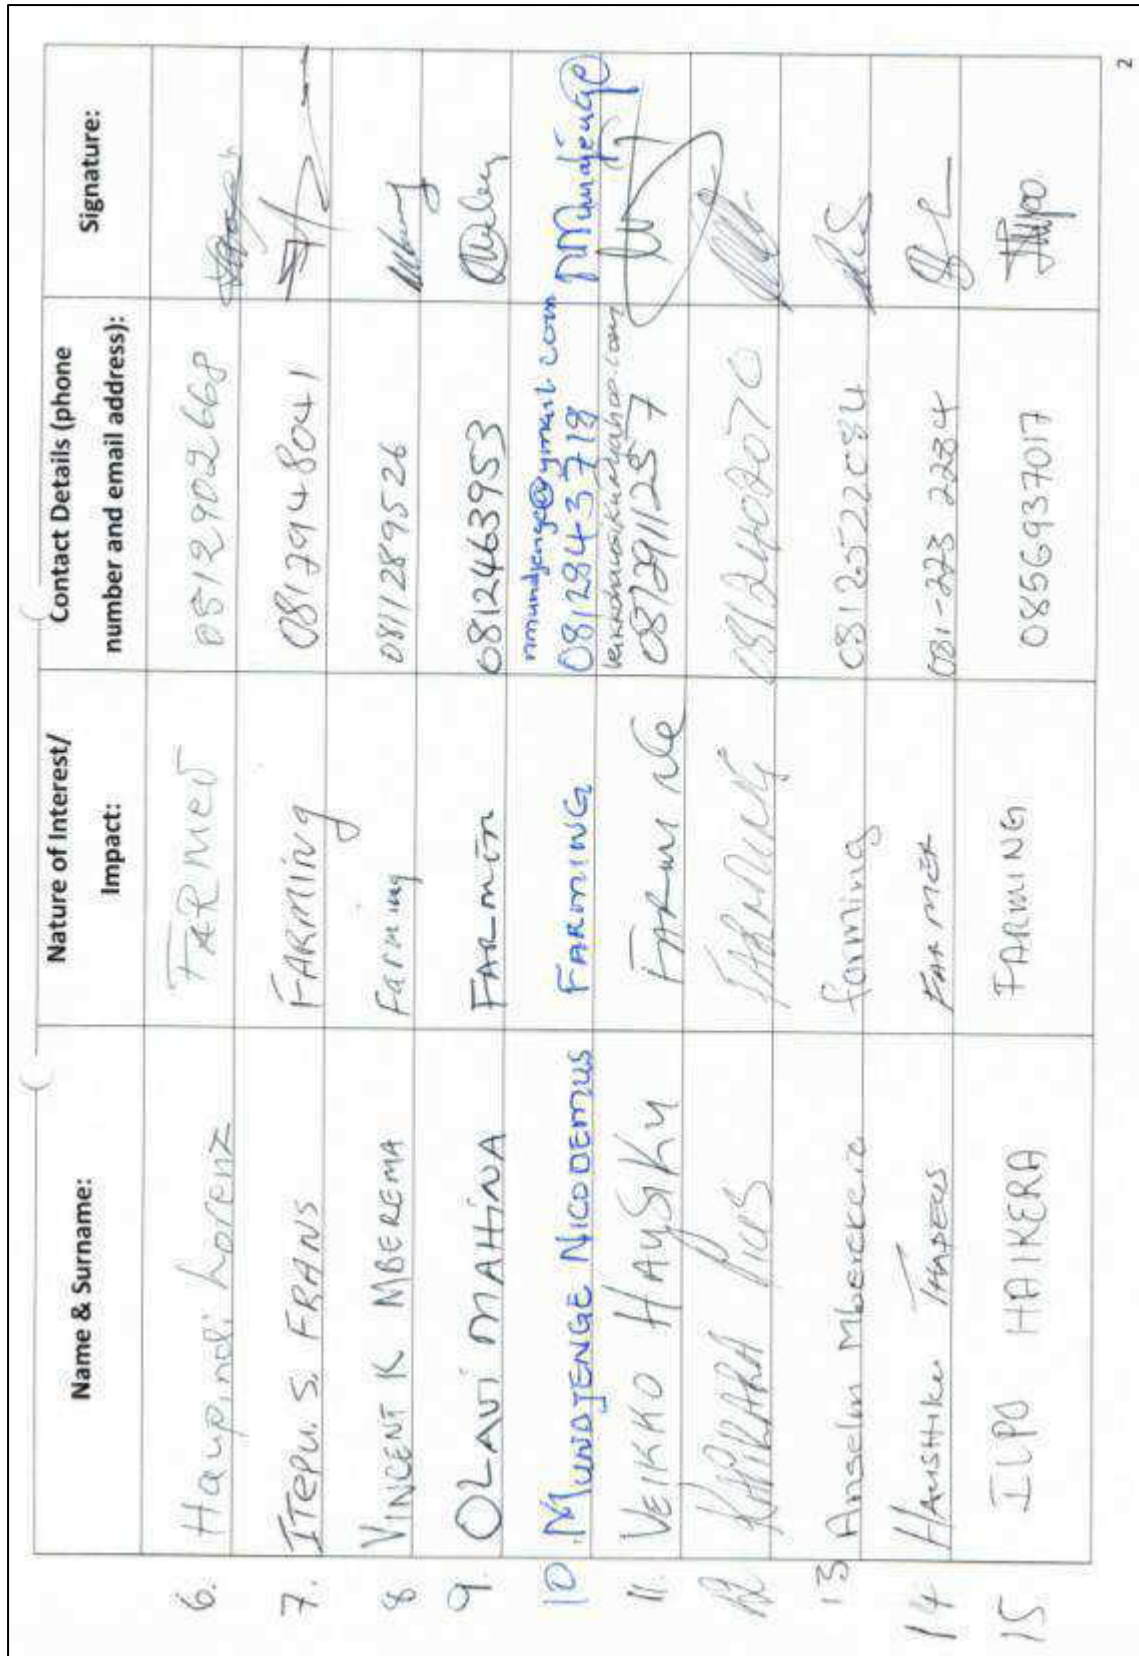 Name & Surname: Nature of Interest/ Impact: Contact Details (phone number and email address): Signature:
6. Haupindi Lorenz FARMER 0812902668
7. ITEPU. S. FRANS FARMING 0812948041
8 VINCENT K MBEREMA Farming 0811289526
9. OLAVI MAHINA FARMING 0812463953
10 MUNDJENGE NICODEMUS FARMING nmundjenge@ymail.com 0812843718 NMundjenge
11. VEIKKO HAUSIKU FARMING 0812911257
12 KAPIRARA PIUS FARMING 0812402070
13 Anselm Mberekera farming 0812522084
14 HAUSHIKU THADEUS FARMER 081-223 2234
15. ILPO HAIKERA FARMING 0856937017
2